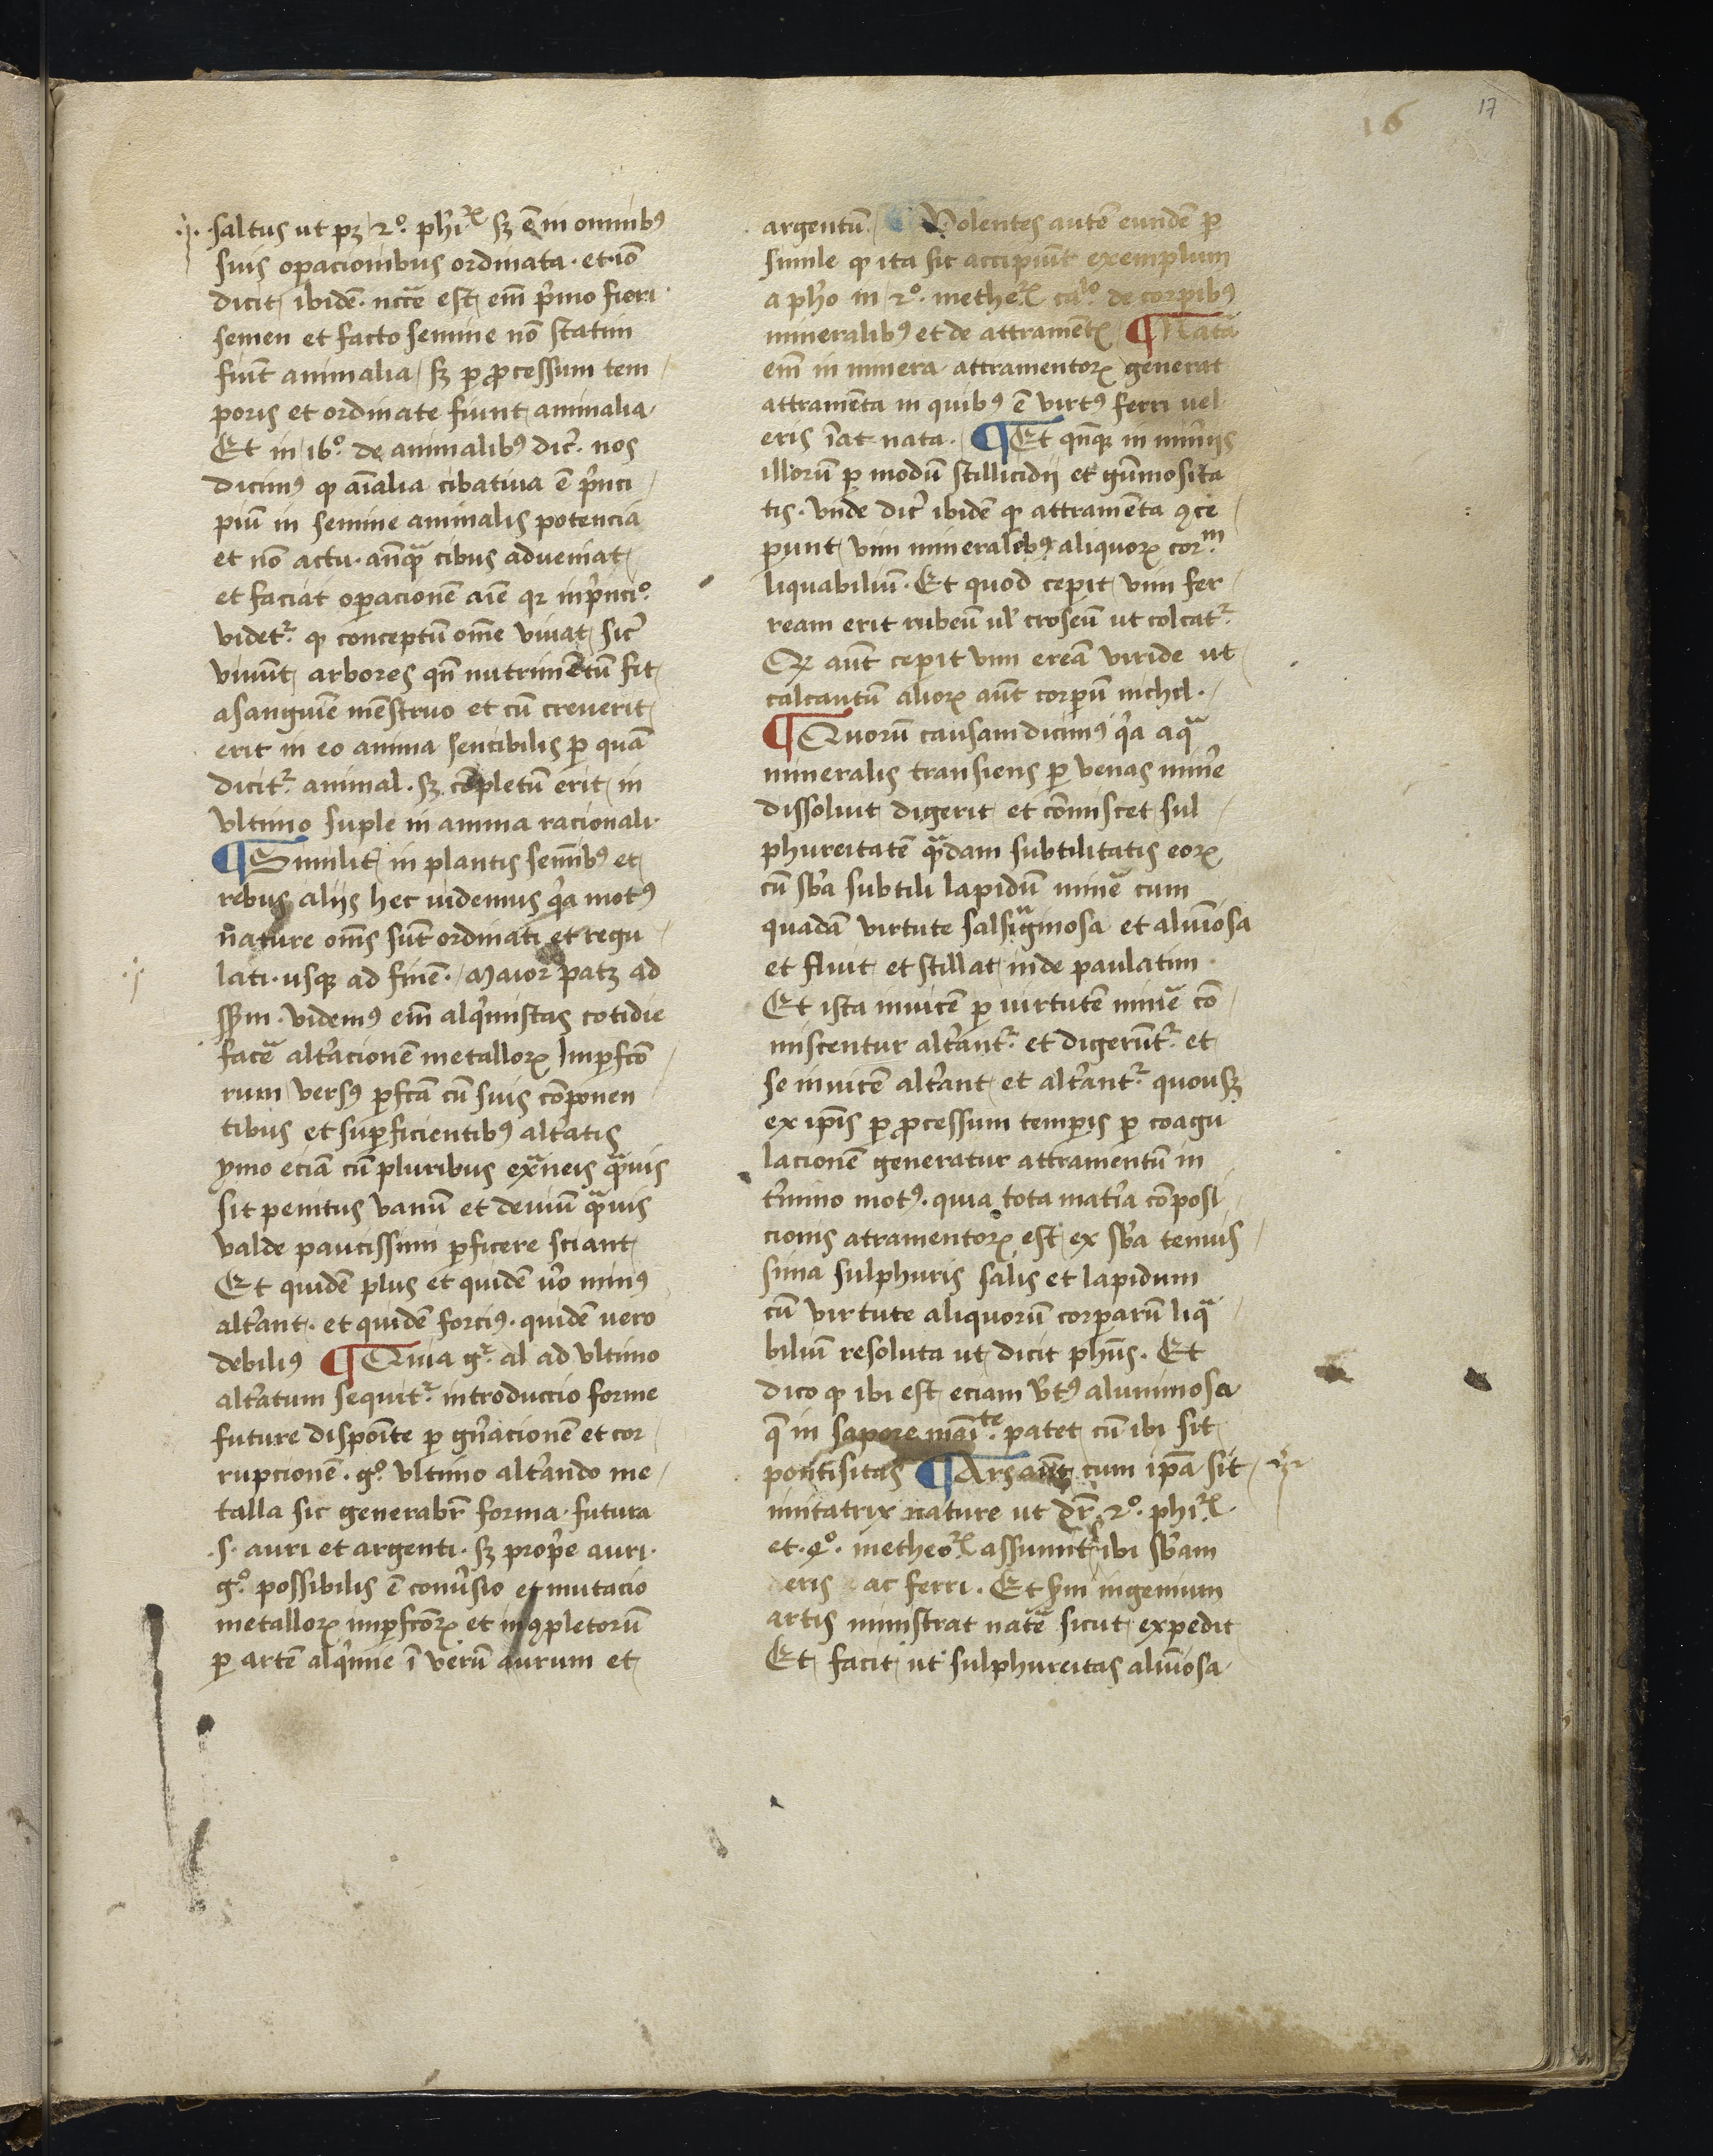 16
17
saltus ut pꝫ 2º. phiꝝ sꝫ ē in omnibꝰ
suis oꝑacionibus ordinata. et iō
dicit ibidē. nccē est em̄ pͥmo fieri
semen et facto semine nō statim
fiūt animalia / sꝫ ꝑ ꝓcessum tem /
poris et ordinate fiunt animalia.
Et in 16º. de animalibꝰ dic̄. nos
dicimꝰ ꝙ aīalia cibatiua ē pͥnci /
piū in semine animalis potencia
et nō actu. anͣꝙ cibus adueniat
et faciat oꝑacionē aīe qꝛ in pͥnciº.
videtᷣ ꝙ conceptū om̄e viuat sic̄
viuūt arbores qn̄ nutrimētū fit
a sanguīe mēstruo et cū creuerit
erit in eo anima sencibilis ꝑ quā
dicitᷣ animal. sꝫ cōpletū erit in
vltimo suple in anima racionali.
¶ Similit̄ in plantis semībꝰ et
rebus aliis hec uidemus qͥa motꝰ
nature om̄s sūt ordinati et regu /
lati. usqꝫ ad finē. / Maior patꝫ ad
ſſm. videmꝰ em̄ alqͥmistas cotidie
facē altͣacionē metalloꝝ Imꝑfcō /
rum versꝰ ꝑfcā cū suis cōponen
tibus et suꝑficientibꝰ altͣatis
ymo eciā cū pluribus exͣneis qͣuis
sit penitus vanū et deuiū qͣuis
valde paucissimi ꝑficere sciant
Et quidē plus et quidē vͦo minꝰ
altͣant. et quidē forciꝰ. quidē uero
debiliꝰ ¶ Quia gᷣ al ad vltimo
altͣatum sequitᷣ introduccio forme
future dispoīte ꝑ gn̄acionē et cor /
rupcionē. gº. vltimo altͣando me /
talla sic generabr̄ forma. futura
.s. auri et argenti. sꝫ propͥe auri.
gº. possibilis ē conuͥsio et mutacio
metalloꝝ imꝑfcōꝝ et inꝯpletorū
ꝑ artē alqͥmie ī verū aurum et
argentū. Volentes autē eundē ꝑ
simile ꝙ ita sit accipiūt exemplum
a ph̄o in 2º. metheꝝ calº. de corꝑibꝰ
mineralibꝰ et de attramētꝭ ¶ Natͣa
em̄ in minera attramentoꝝ generat
attramēta in quibꝰ ē virtꝰ ferri uel
eris īat nata. ¶ Et qn̄qꝫ in minͥiis
illorū ꝑ modū stillicidij et gūmosita
tis. vnde dic̄ ibidē ꝙ attramēta ꝯce /
punt vim mineralibꝰ aliquoꝝ corᵐ
liquabiliū. Et quod cepit vim fer /
ream erit rubeū ul̄ croseū ut colcatᷣ
Qꝫ aūt cepit vim ereā viride ut
calcantū alioꝝ aūt corpū nichil. /
¶ Quorū causam dicimꝰ qͥa aqͣ
mineralis transiens ꝑ venas minͥe
dissoluit digerit et cōmiscet sul /
phureitatē qͣdam subtilitatis eoꝝ
cū sb̄a subtili lapidū minē cum
quadā virtute salsigͥnosa et alumīosa
et fluit et stillat inde paulatim
Et ista inuicē ꝑ uirtutē minē cō /
miscentur altͣantᷣ et digerūtᷣ et
se inuicē altͣant et altͣantᷣ quousqꝫ
ex ip̄is ꝑ ꝓcessum temꝑis ꝑ coagu
lacionē generatur attramentū in
tͥmino motꝰ. quia tota matͥa cōposi /
cionis atramentoꝝ est ex sb̄a tenuis /
sima sulphuris salis et lapidum
cū virtute aliquorū corꝑarū liqͣ
biliū resoluta ut dicit ph̄us. Et
dico ꝙ ibi est eciam v̄tꝰ aluminosa
q̄ in sapore māiᵗᵉ. patet cū ibi sit
pontisitas ¶ Ars aūt cum ip̄a sit
imitatrix nature ut dr̄ 2º. phiꝝ.
et. 4º. metheoꝝ assumitᷣ ibi sb̄am
eris ac ferri. Et ſm̄ ingenium
artis ministrat natͣe sicut expedit
Et facit ut sulphureitas alumīosa